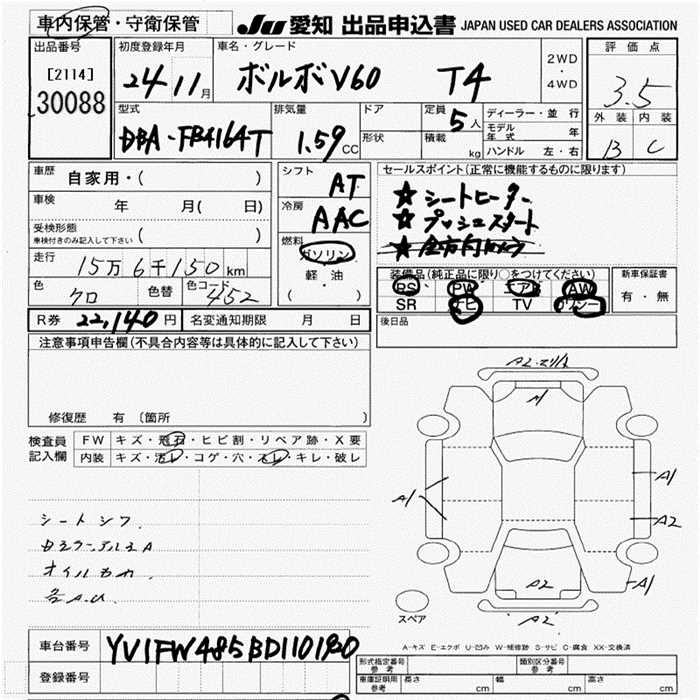 車内保管・守衛保管
JU 愛知 出品申込書 JAPAN USED CAR DEALERS ASSOCIATION
出品番号 初度登録年月 車名・グレード 2WD・4WD 評価点
[2114] 24 11月 ボルボV60 T4 3.5
30088
型式 排気量 ドア 定員 5人 ディーラー・並行 外装 内装
DBA-FB4164T 1.59 CC 形状 積載 kg モデル年式 年 B C
ハンドル 左・右
車歴 自家用・( ) シフト AT セールスポイント(正常に機能するものに限ります)
車検 年 月( 日) 冷房 AAC ★シートヒーター
受検形態 ( ) ★プッシュスタート
車検付きのみ記入して下さい 燃料 ★全方向カメラ
走行 15万6千150km ガソリン
軽油
( ・ )
装備品(純正品に限り○をつけてください) 新車保証書
色 クロ 色替 色コード 452 PS PW エアB AW 有・無
SR ナビ TV カワシート
R券 22,140円 名変通知期限 月 日 後日品
注意事項申告欄(不具合内容等は具体的に記入して下さい)
修復歴 有 〔箇所
検査員記入欄 FW キズ・飛石・ヒビ割・リペア跡・X要
内装 キズ・汚レ・コゲ・穴・スレ・キレ・破レ
A1
A1
A1
A2
A1
A2
A2
シートシワ
スペア
A-キズ E-エクボ U-凹み W-補修跡 S-サビ C-腐食 XX-交換済
車台番号 YV1FW485BD1101920
登録番号
形式指定番号 参考 類別区分番号 参考
車庫証明用 参考 長さ cm 幅 cm 高さ cm